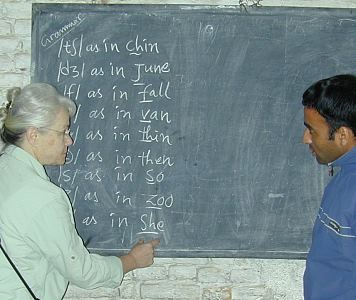 Grammar
/tʃ/ as in chin
/dʒ/ as in June
/f/ as in fall
/ as in van
/ as in thin
/ as in then
/s/ as in so
/ as in zoo
as in she